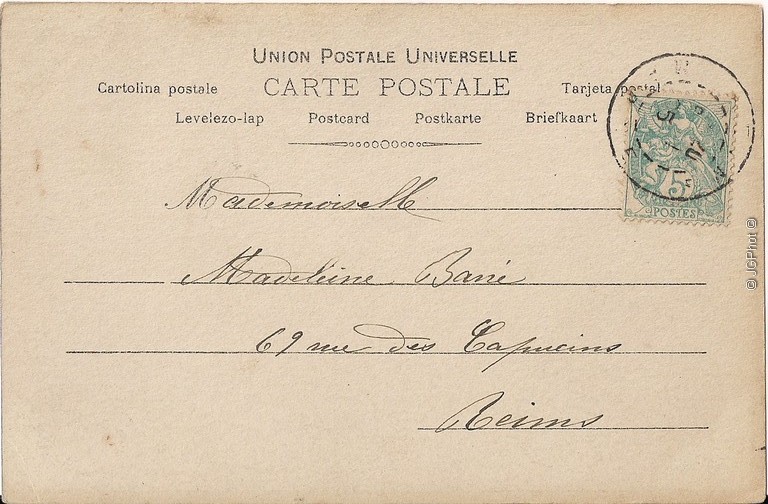 UNION POSTALE UNIVERSELLE
Cartolina postale CARTE POSTALE Tarjeta postal
Levelezo-lap Postcard Postkarte Briefkaart
Mademoiselle
Madeleine
69 rue des Capucins
Reims
5
POSTES
© JGPhot ©